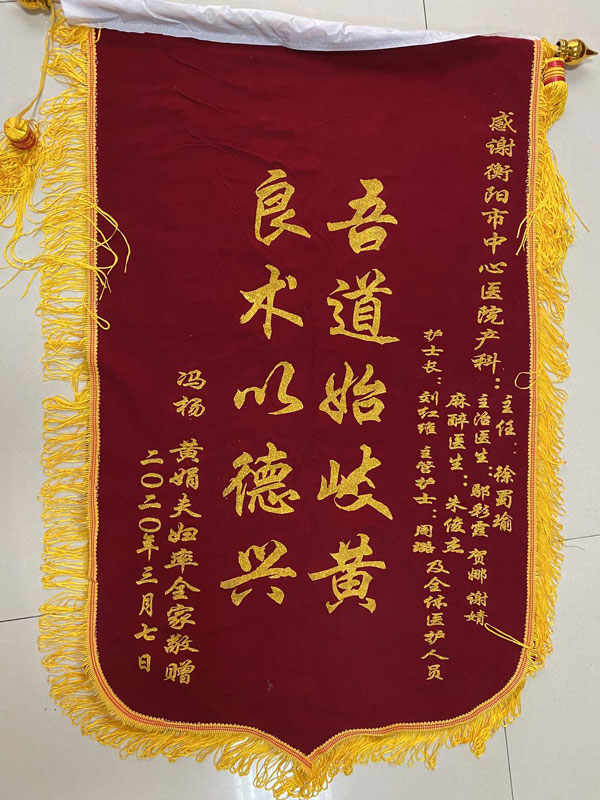 感谢衡阳市中心医院产科：主任：徐蜀瑜
主治医生：鄢彩霞 贺娜 谢婧
麻醉医生：朱俊志
护士长：刘红维 主管护士：周璐 及全体医护人员
吾道始岐黄
良术以德兴
冯杨 黄娟夫妇率全家敬赠
二〇二〇年三月七日